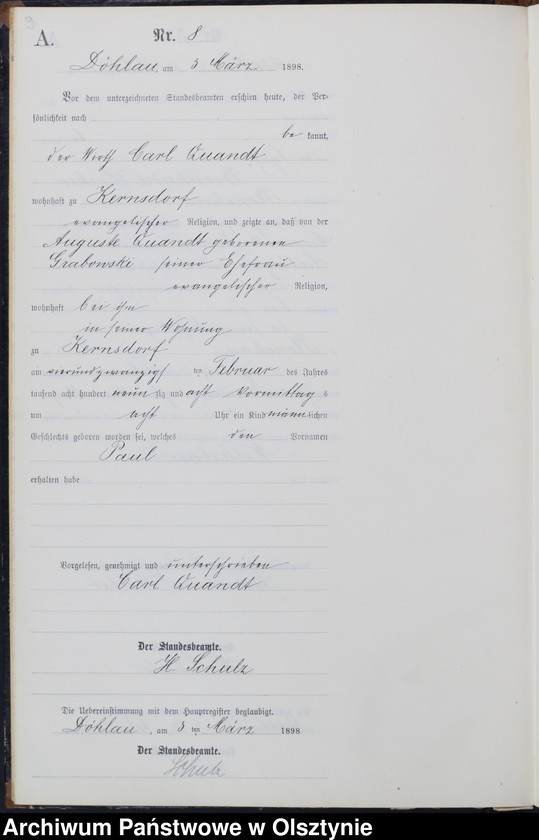 A.
Nr. 8
Döhlau, am 3 März 1898.
Vor dem unterzeichneten Standesbeamten erschien heute, der Per-
sönlichkeit nach
be kannt,
der Carl Quandt
wohnhaft zu Kernsdorf
evangelischer Religion, und zeigte an, daß von der
Auguste Quandt geborenen
Grabowski seiner Ehefrau
evangelischer Religion,
wohnhaft bei ihm
in seiner Wohnung
zu Kernsdorf
am vierundzwanzigsten Februar des Jahres
tausend acht hundert neunzig und acht Vormittags
um acht Uhr ein Kind männlichen
Geschlechts geboren worden sei, welches den Vornamen
Paul
erhalten habe
Vorgelesen, genehmigt und unterschrieben
Carl Quandt
Der Standesbeamte.
H Schulz
Die Uebereinstimmung mit dem Hauptregister beglaubigt.
Döhlau, am 3 ten März 1898
Der Standesbeamte.
Schulz
Archiwum Państwowe w Olsztynie